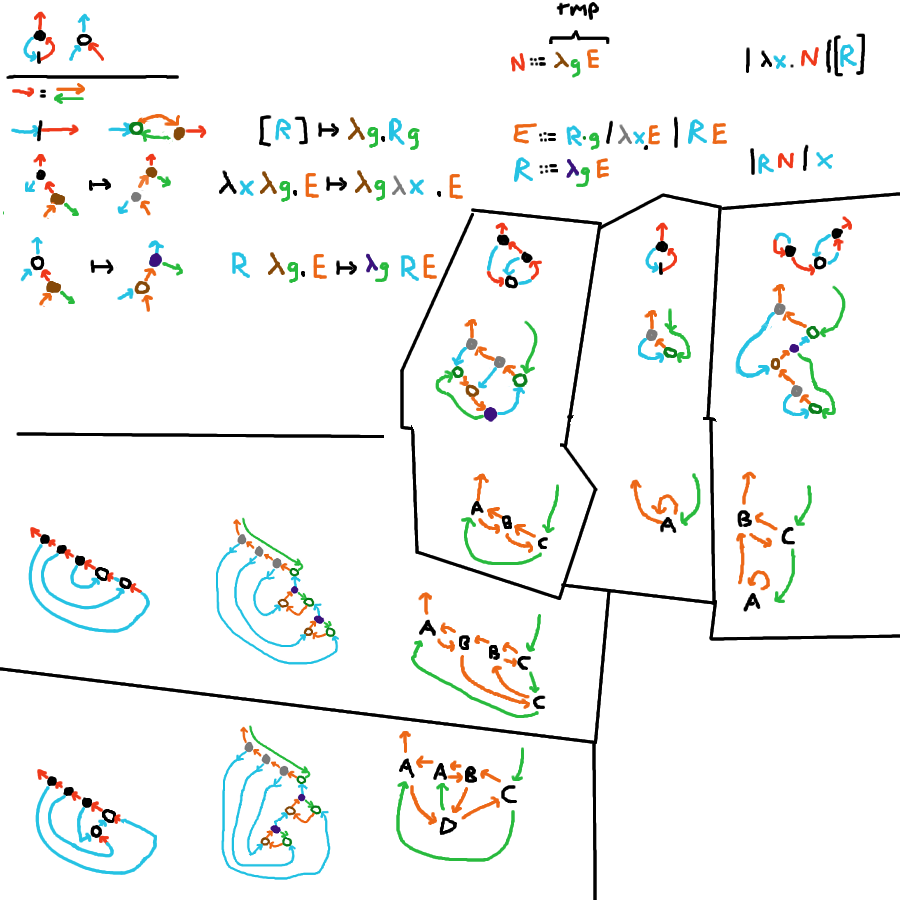 tmp
N ::= λg E
| λx. N | [R]
=
[R] ↦ λg.Rg
E ::= R·g / λx.E | R E
R ::= λg E
| R N | x
↦
λx λg. E ↦ λg λx . E
↦
R λg. E ↦ λg R E
A
B
C
A
B
C
A
A
B
B
C
C
A
A
B
C
D